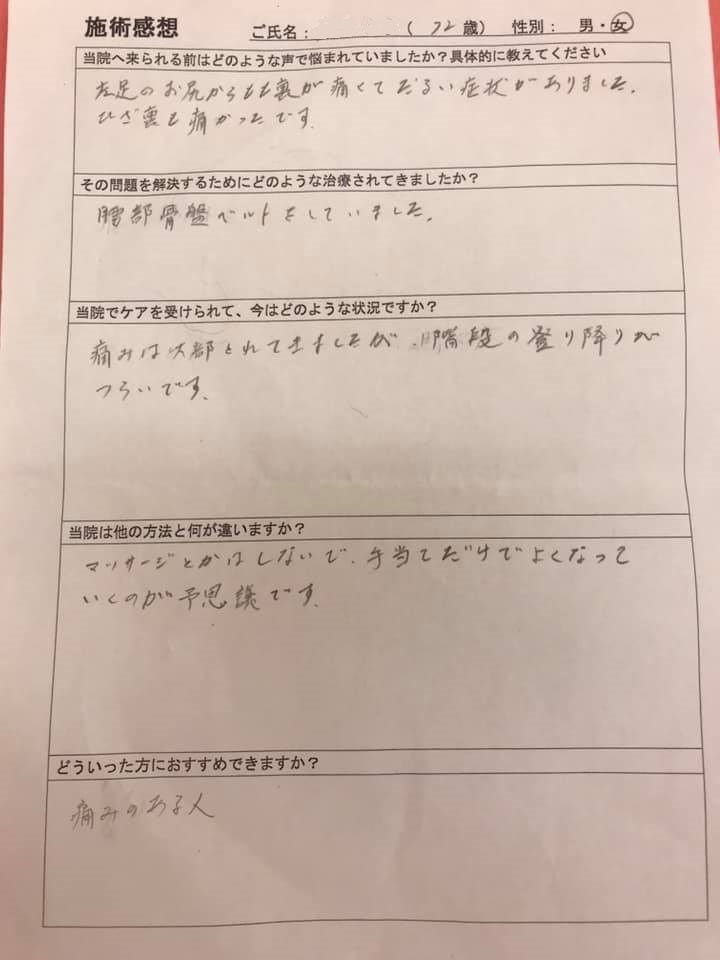 施術感想 ご氏名: (72歳) 性別: 男・女
当院へ来られる前はどのような声で悩まれていましたか？具体的に教えてください
左足のお尻からもも裏が痛くてだるい症状がありました。
ひざ裏も痛かったです。
その問題を解決するためにどのような治療されてきましたか？
腰部骨盤ベルトをしていました。
当院でケアを受けられて、今はどのような状況ですか？
痛みは大部とれてきましたが、階段の登り降りが
つらいです。
当院は他の方法と何が違いますか？
マッサージとかはしないで、手当てだけでよくなって
いくのが予思議です。
どういった方におすすめできますか？
痛みのある人